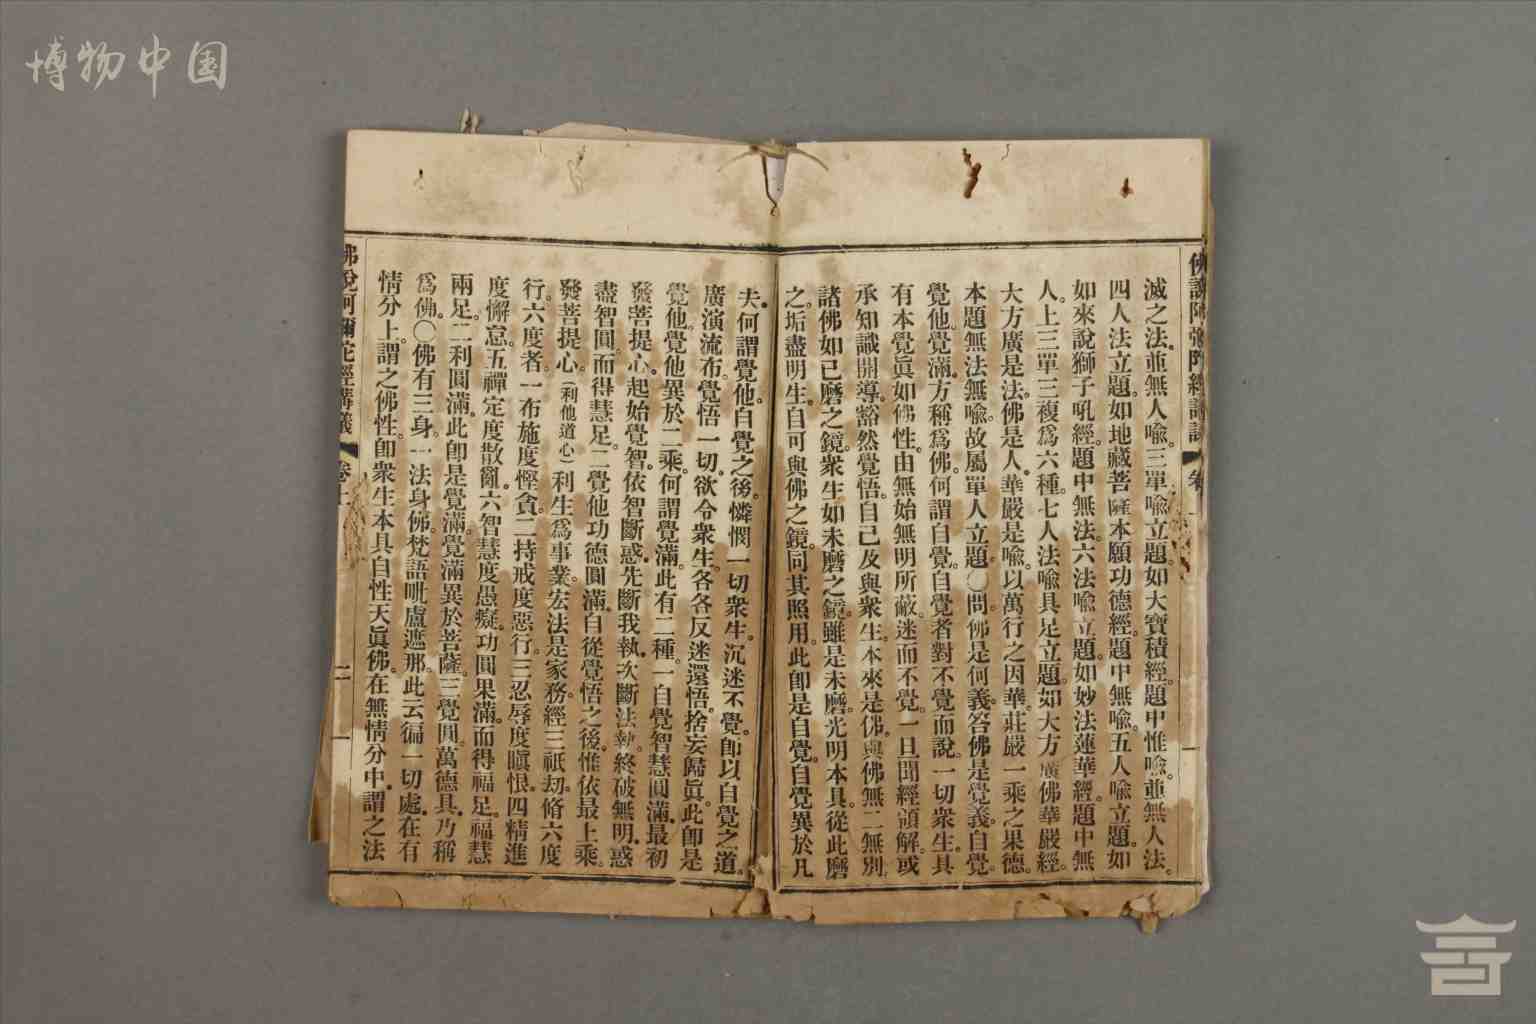 博物中国
滅之法並無人喩三單喩立題如大寶積經題中惟喩並無人法
四人法立題如地藏菩薩本願功德經題中無喩五人喩立題如
如來說獅子吼經題中無法六法喩立題如妙法蓮華經題中無
人上三單三複爲六種七人法喩具足立題如大方廣佛華嚴經
大方廣是法佛是人華嚴是喩以萬行之因華莊嚴一乘之果德
本題無法無喩故屬單人立題〇問佛是何義答佛是覺義自覺
覺他覺滿方稱爲佛何謂自覺自覺者對不覺而說一切衆生具
有本覺眞如佛性由無始無明所蔽迷而不覺一旦聞經領解或
承知識開導豁然覺悟自己及與衆生本來是佛與佛無二無別
諸佛如已磨之鏡衆生如未磨之鏡雖是未磨光明本具從此磨
之垢盡明生自可與佛之鏡同其照用此卽是自覺自覺異於凡
夫何謂覺他自覺之後憐憫一切衆生沉迷不覺卽以自覺之道
廣演流布覺悟一切欲令衆生各各反迷還悟捨妄歸眞此卽是
覺他覺他異於二乘何謂覺滿此有二種一自覺智慧圓滿最初
發菩提心起始覺智依智斷惑先斷我執次斷法執終破無明惑
盡智圓而得慧足二覺他功德圓滿自從覺悟之後惟依最上乘
發菩提心（利他道心）利生爲事業宏法是家務經三祇劫脩六度
行六度者一布施度慳貪二持戒度惡行三忍辱度瞋恨四精進
度懈怠五禪定度散亂六智慧度愚癡功圓果滿而得福足福慧
兩足二利圓滿此卽是覺滿覺滿異於菩薩三覺圓萬德具乃稱
爲佛〇佛有三身一法身佛梵語毗盧遮那此云徧一切處在有
情分上謂之佛性卽衆生本具自性天眞佛在無情分中謂之法
佛說阿彌陀經講義 卷上 二一